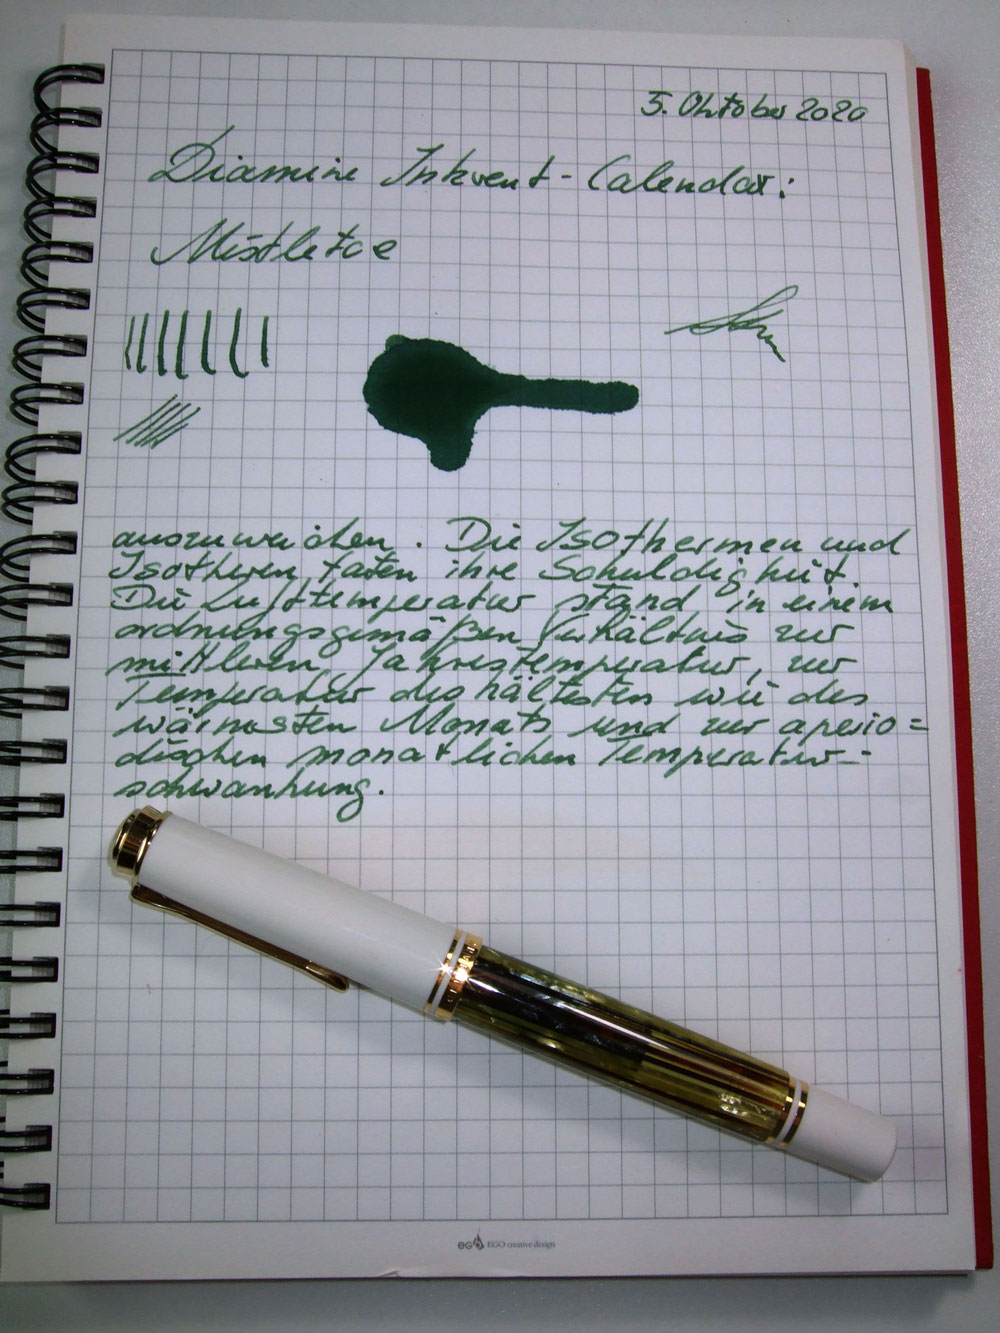 5. Oktober 2020
Diamine Inkvent-Calendar:
Mistletoe
auszuweichen. Die Isothermen und
Isotheren taten ihre Schuldigkeit.
Die Lufttemperatur stand in einem
ordnungsgemäßen Verhältnis zur
mittleren Jahrestemperatur, zur
Temperatur des kältesten wie des
wärmsten Monats und zur aperio=
dischen monatlichen Temperatur-
schwankung.
EGO EGO creative design